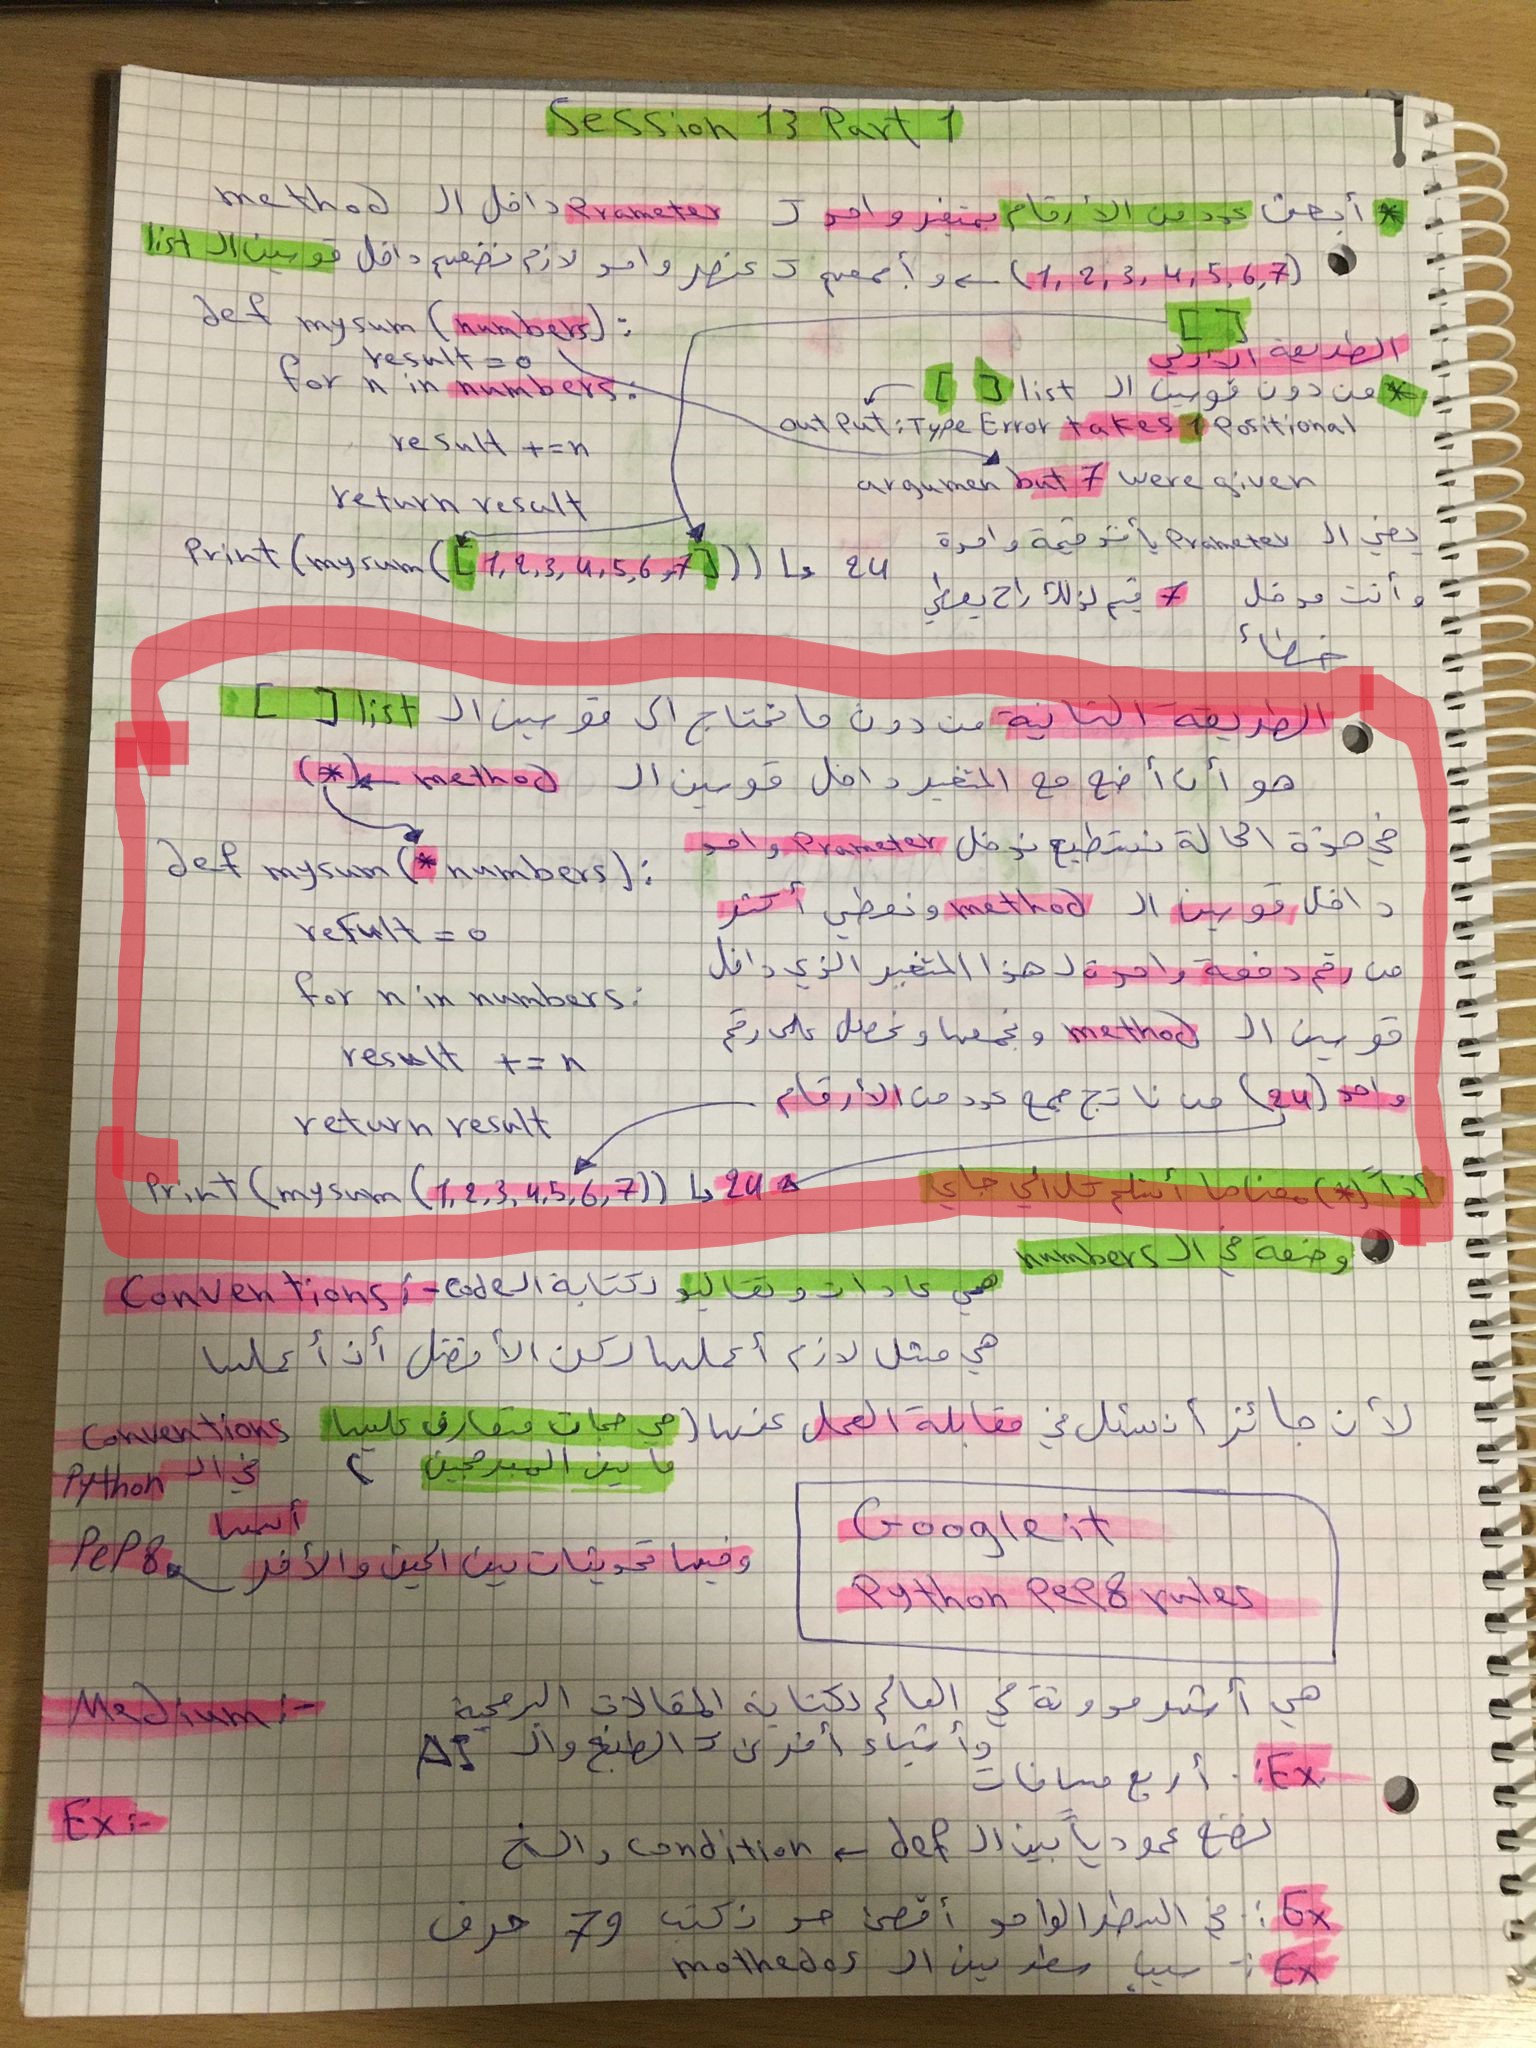 Session 13 Part 1
* أبعث عدد من الأرقام بمتغير واحد لـ Prameter داخل الـ method
(1, 2, 3, 4, 5, 6, 7) ← و أجمعهم لـ عنصر واحد لازم نضعهم داخل قوسين الـ list
[ ]
def mysum (numbers):
result = 0
for n in numbers:
result += n
return result
Print (mysum ([1,2,3,4,5,6,7])) ↳ 24
الطريقة الأولى
* من دون قوسين الـ list [ ]
output: Type Error takes 1 Positional
argumen but 7 were given
يعني الـ Prameter يأخذ قيمة واحدة
وأنت مدخل 7 قيم لذلك راح يعطي
خطأ
الطريقة الثانية من دون ما نحتاج الى قوسين الـ list [ ]
هو أن أضع مع المتغير داخل قوسين الـ method ← (*)
في هذة الحالة نستطيع ندخل Prameter واحد
داخل قوسين الـ method ونعطي أكثر
من رقم دفعة واحدة لهذا المتغير الذي داخل
قوسين الـ method ونجمعها ونحصل على رقم
واحد (24) من ناتج جمع عدد من الأرقام
def mysum (* numbers):
result = 0
for n in numbers:
result += n
return result
Print (mysum (1,2,3,4,5,6,7)) ↳ 24
أذاً (*) معناها أستلم كل الي جاي
وضعة في الـ numbers
Conventions:- هي عادات وتقاليد لكتابة الـ code
هي مثل لازم أعملها لكن الأفضل أن أعملها
لأن جائز أن نسئل في مقابلة العمل عنها (هي صحات متعارف عليها
ما بين المبرمجين )
Conventions
في الـ Python
أسمها
PeP8
وفيها تحديثات بين الحين والأخر
Google it
Python PeP8 rules
Medium:- هي أشهر مدونة في العالم لكتابة المقالات البرمجية
وأشياء أخرى كـ الطبخ والـ AI
Ex:- أربع مسافات
Ex:-
لنضع عمودياً بين الـ def ← condition والـخ
Ex:- في السطر الواحد أقصى حد نكتب 79 حرف
Ex:- سيب سطر بين الـ mothedos